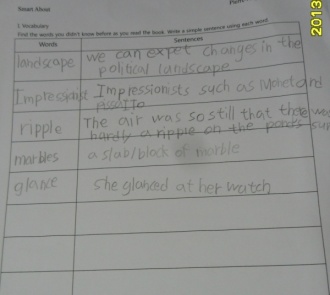 2013
Smart About
I. Vocabulary
Find the words you didn't know before as you read the book. Write a simple sentence using each word.
Words Sentences
landscape we can expet changes in the
political landscape
Impressionist Impressionists such as Monet and
ripple The air was so still that there was
hardly a ripple on the pond's sur
marbles a slab/block of marble
glance she glanced at her watch